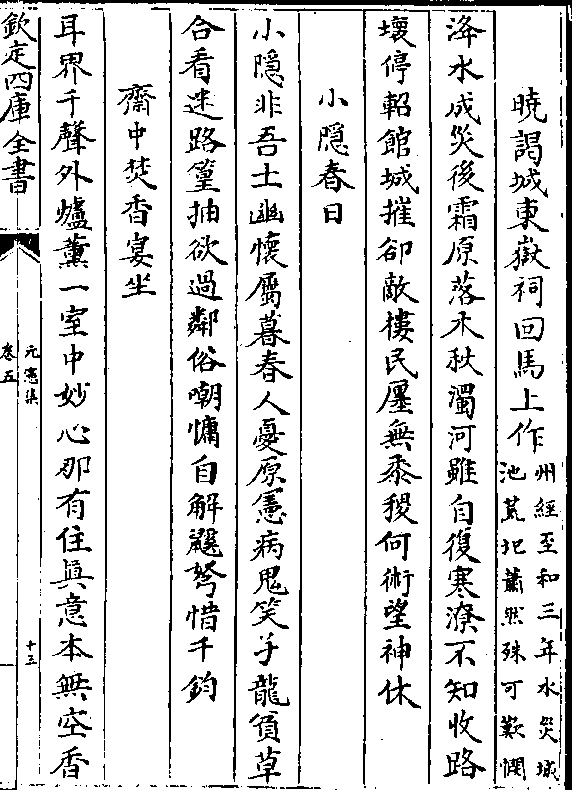 曉謁城東嶽祠回馬上作州經至和三年水災城
池荒圯蕭然殊可歎憫
洚水成災後霜原落木秋濁河雖自復寒潦不知收路
壞停軺館城摧卻敵樓民廛無黍稷何術望神休
小隱春日
小隱非吾土幽懷屬暮春人憂原憲病鬼笑子龍貧草
合看迷路篁抽欲過鄰俗嘲慵自解鼷弩惜千鈞
齋中焚香宴坐
耳界千聲外爐薰一室中妙心那有住真意本無空香
欽定四庫全書
元憲集
卷五
十三